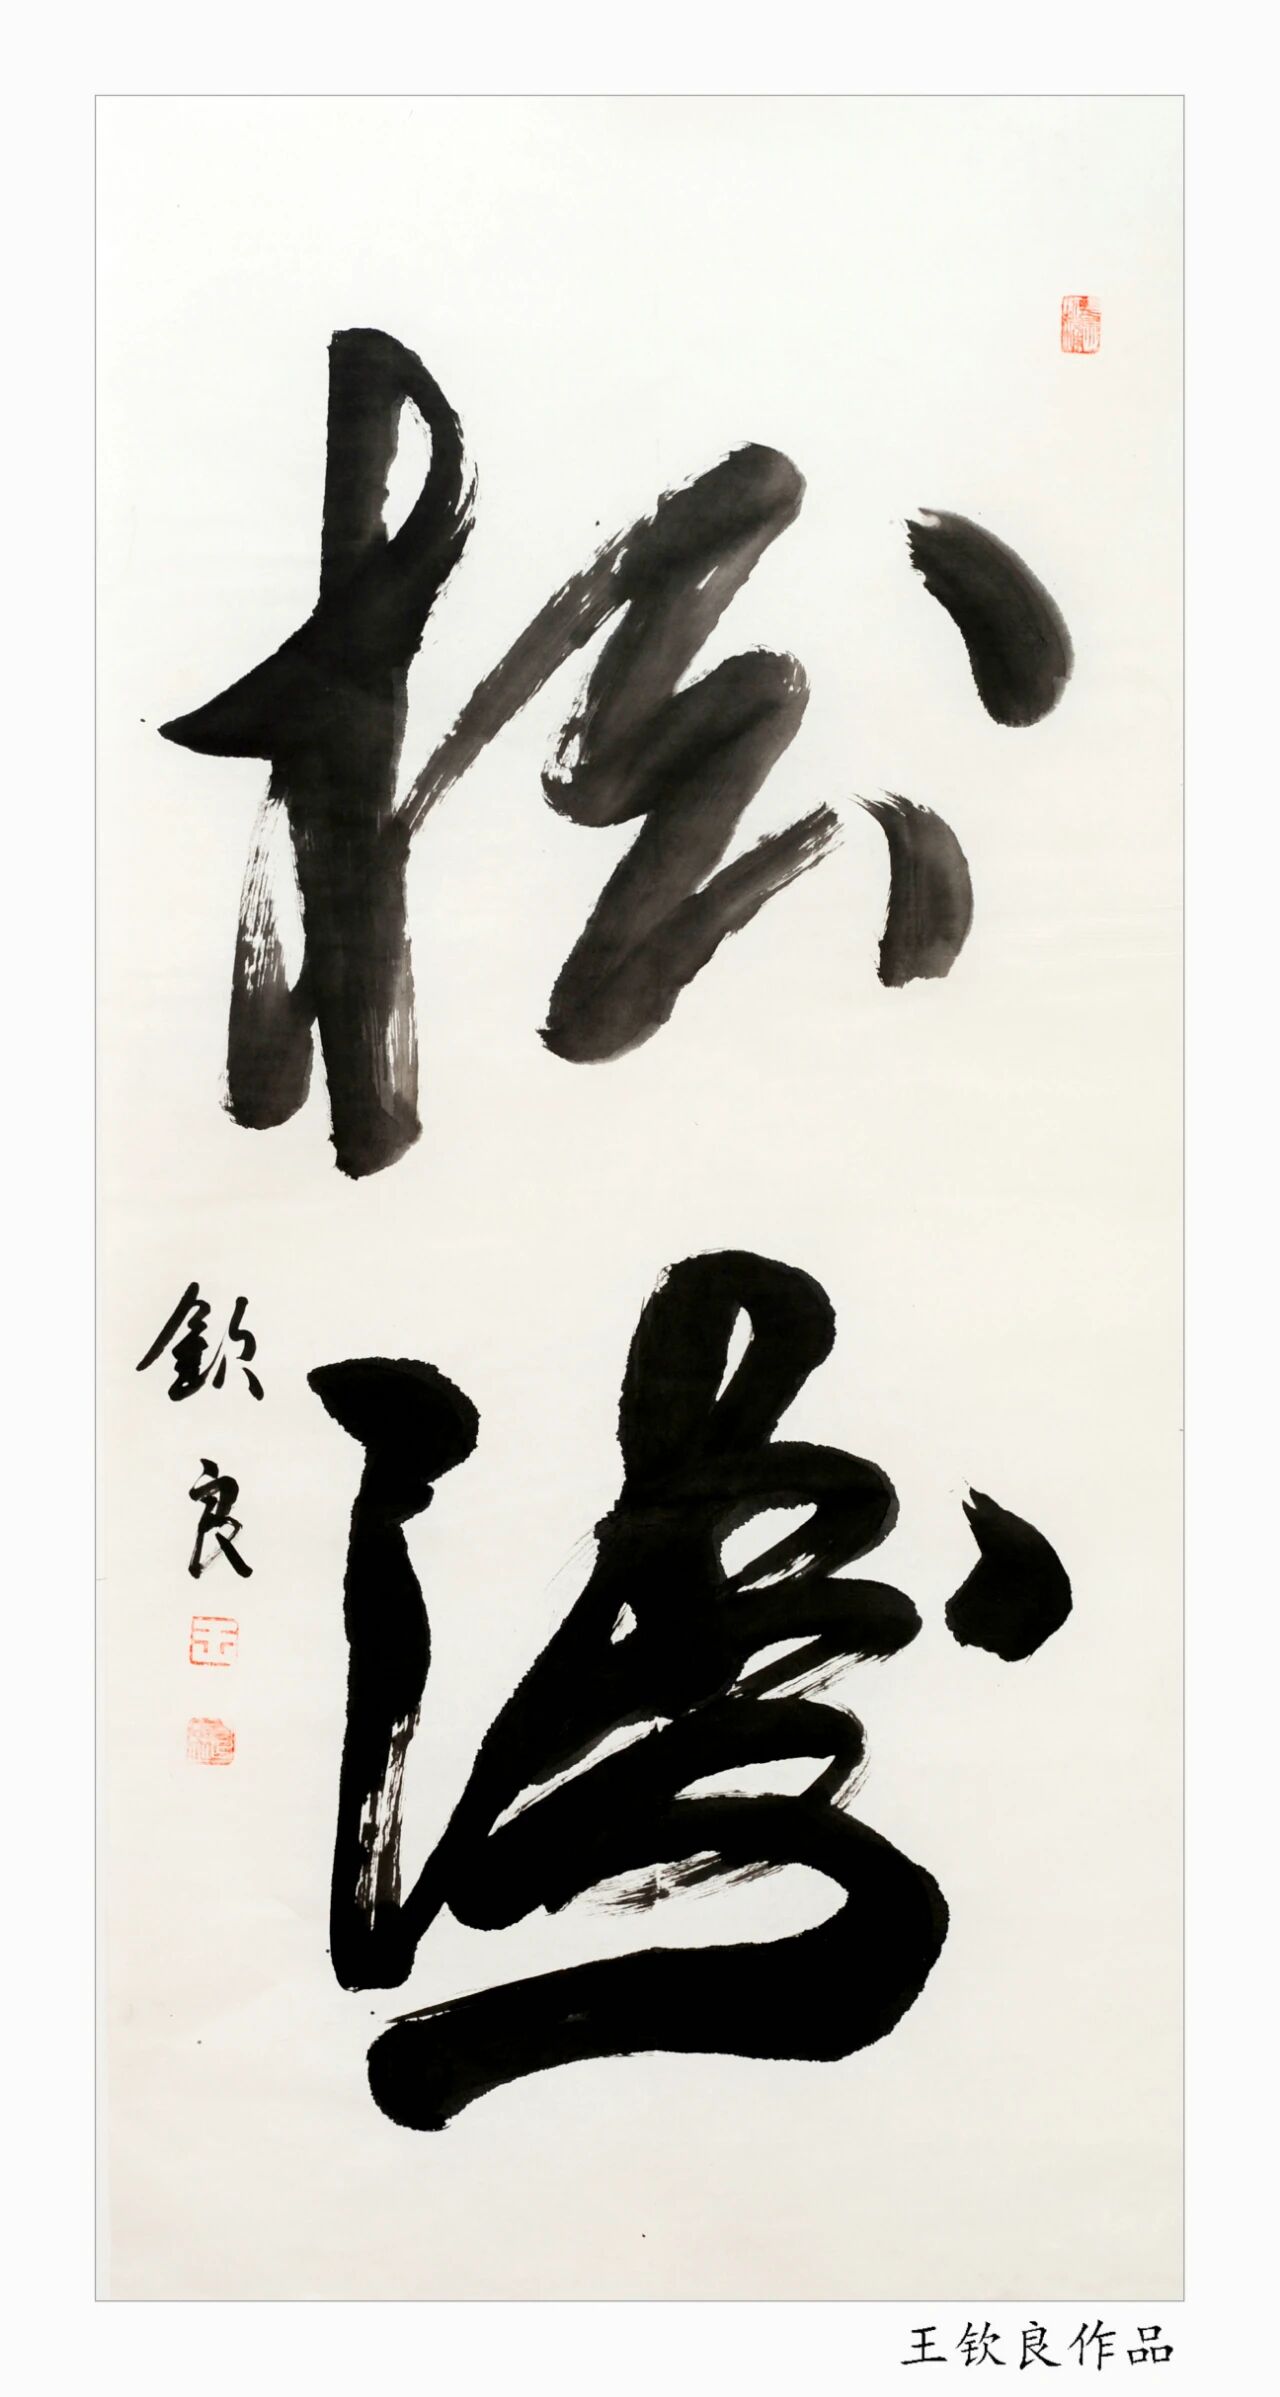 松涛
欽良
王钦良作品